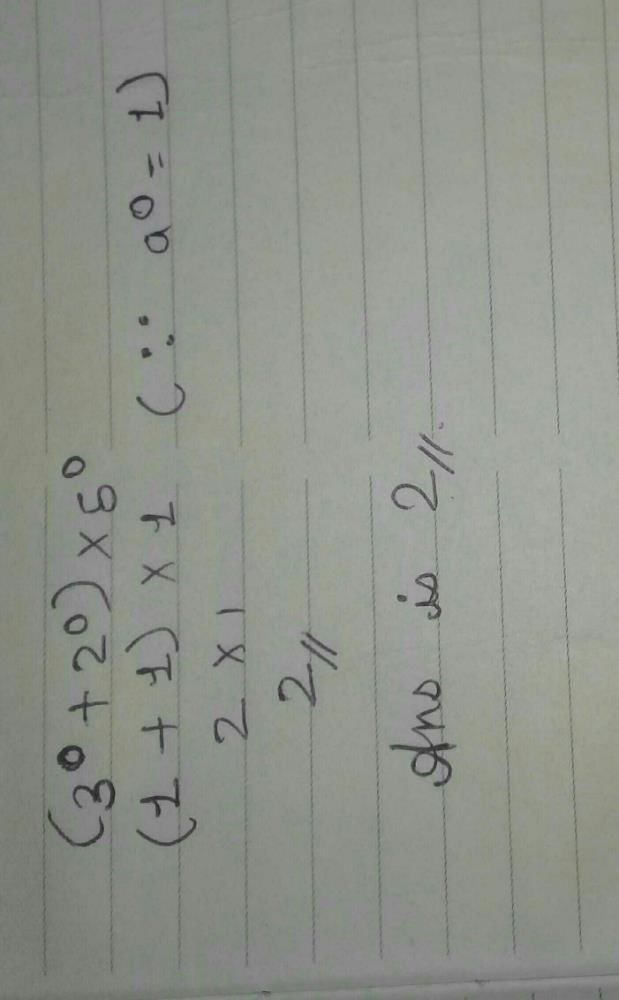 (3⁰ + 2⁰) × 5⁰
(1 + 1) × 1 (∵ a⁰ = 1)
2 × 1
2//
Ans is 2//.